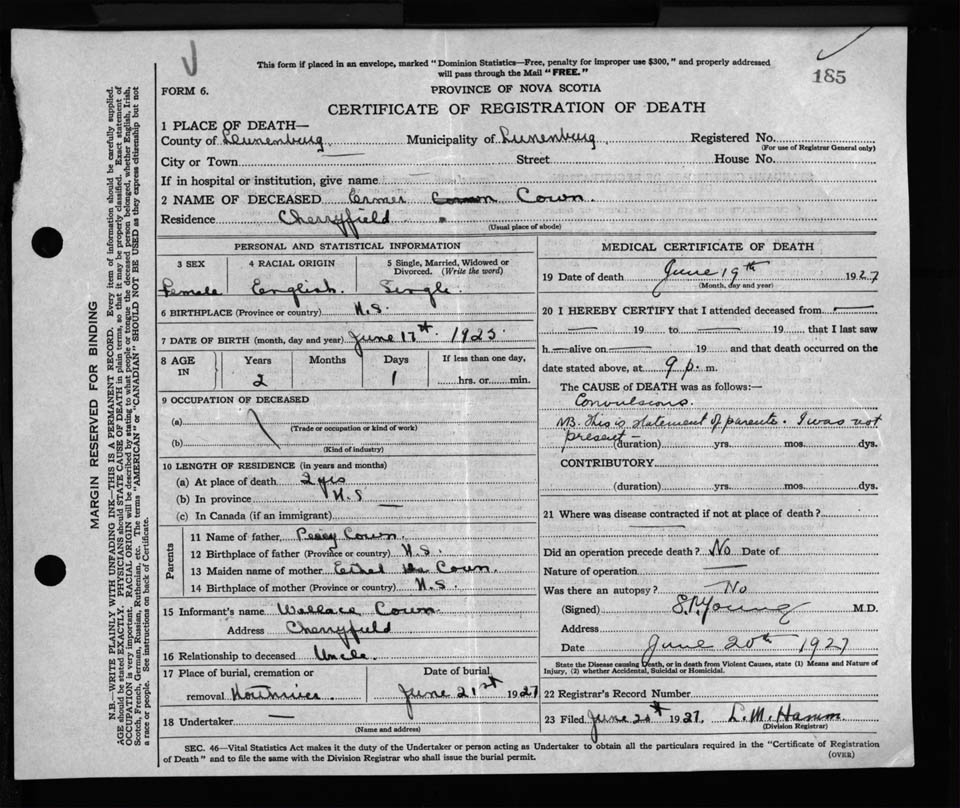 This form if placed in an envelope, marked "Dominion Statistics—Free, penalty for improper use $300," and properly addressed
will pass through the Mail "FREE."
185
FORM 6.
PROVINCE OF NOVA SCOTIA
CERTIFICATE OF REGISTRATION OF DEATH
1 PLACE OF DEATH—
County of Lunenburg Municipality of Lunenburg Registered No.
(For use of Registrar General only)
City or Town Street House No.
If in hospital or institution, give name
2 NAME OF DECEASED Cown
Residence Cherryfield
(Usual place of abode)
PERSONAL AND STATISTICAL INFORMATION
3 SEX 4 RACIAL ORIGIN 5 Single, Married, Widowed or Divorced. (Write the word)
Female English. Single.
6 BIRTHPLACE (Province or country) N.S.
7 DATE OF BIRTH (month, day and year) June 17th 1925
8 AGE IN Years Months Days If less than one day,
2 1 hrs. or min.
9 OCCUPATION OF DECEASED
(a)
(Trade or occupation or kind of work)
(b)
(Kind of industry)
10 LENGTH OF RESIDENCE (in years and months)
(a) At place of death 2 yrs
(b) In province N.S
(c) In Canada (if an immigrant)
Parents
11 Name of father Percy Cown
12 Birthplace of father (Province or country) N.S.
13 Maiden name of mother Ethel Cown
14 Birthplace of mother (Province or country) N.S.
15 Informant's name Wallace Cown
Address Cherryfield
16 Relationship to deceased Uncle.
17 Place of burial, cremation or Date of burial
removal June 21st 1927
18 Undertaker
(Name and address)
MEDICAL CERTIFICATE OF DEATH
19 Date of death June 19th 1927
(Month, day and year)
20 I HEREBY CERTIFY that I attended deceased from
19 to 19 that I last saw
h alive on 19 and that death occurred on
date stated above, at 9 p. m.
The CAUSE of DEATH was as follows:—
Convulsions.
NB. This is statement of parents. I was not
present—
(duration) yrs. mos. dys.
CONTRIBUTORY
(duration) yrs. mos. dys.
21 Where was disease contracted if not at place of death?
Did an operation precede death? No Date of
Nature of operation
Was there an autopsy? No
(Signed) Young M.D.
Address
Date June 20th 1927
State the Disease causing Death, or in death from Violent Causes, state (1) Means and Nature of
Injury, (2) whether Accidental, Suicidal or Homicidal.
22 Registrar's Record Number
23 Filed June 1927. L. M. Hamm
(Division Registrar)
SEC. 46—Vital Statistics Act makes it the duty of the Undertaker or person acting as Undertaker to obtain all the particulars required in the "Certificate of Registration
of Death" and to file the same with the Division Registrar who shall issue the burial permit.
(OVER)
MARGIN RESERVED FOR BINDING
N.B.—WRITE PLAINLY WITH UNFADING INK—THIS IS A PERMANENT RECORD. Every item of information should be carefully supplied.
AGE should be stated EXACTLY. PHYSICIANS should STATE CAUSE OF DEATH in plain terms, so that it may be properly classified. Exact statement of
OCCUPATION is very important. RACIAL ORIGIN will be described by stating to what people or tongue the deceased person belonged, whether English, Irish,
Scotch, French, German, Russian, Ruthenian, etc. The terms "AMERICAN" or "CANADIAN" SHOULD NOT BE USED as they express citizenship but not
a race or people. See instructions on back of Certificate.